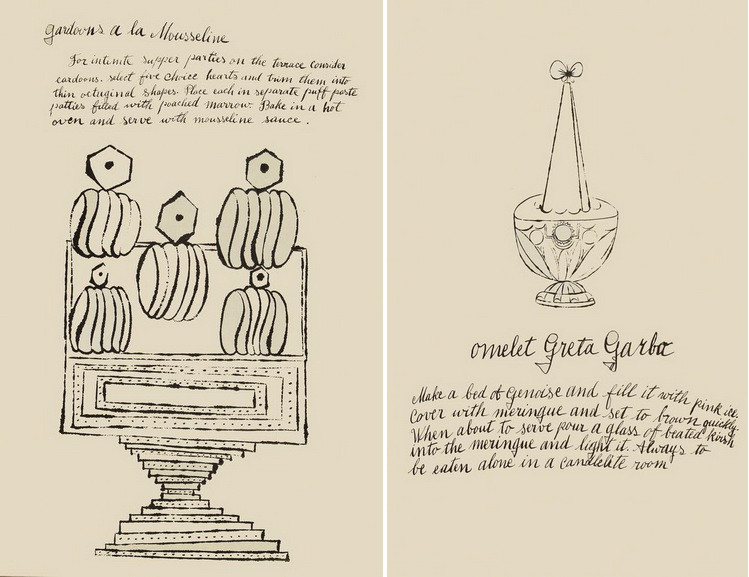 gardoons a la Mousseline
For intimite supper parties on the terrace consider
cardoons. select five choice hearts and trim them into
thin octuginal shapes. Place each in separate puff paste
patties filled with poached marrow. Bake in a hot
oven and serve with mousseline sauce.
omelet Greta Garbo
Make a bed of Genoise and fill it with pink ice.
Cover with meringue and set to brown quickly.
When about to serve pour a glass of heated kirsh
into the meringue and light it. Always to
be eaten alone in a candlelite room